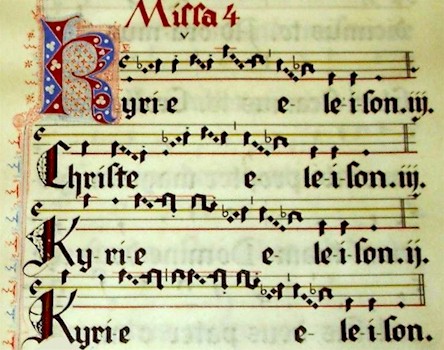 Missa 4
Kyrie e- leison.iij.
Christe e- leison.iij.
Kyrie e- leison.ij.
Kyrie e- leison.